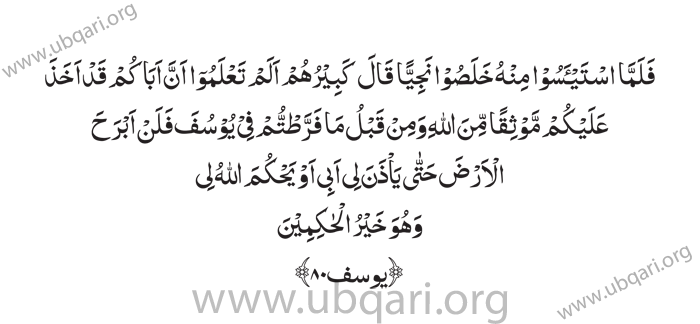 www.ubqari.org
فَلَمَّا اسْتَيْـَٔسُوْا مِنْهُ خَلَصُوْا نَجِيًّا قَالَ كَبِيْرُهُمْ اَلَمْ تَعْلَمُوْا اَنَّ اَبَاكُمْ قَدْ اَخَذَ
عَلَيْكُمْ مَّوْثِقًا مِّنَ اللهِ وَمِنْ قَبْلُ مَا فَرَّطْتُّمْ فِيْ يُوْسُفَ فَلَنْ اَبْرَحَ
الْاَرْضَ حَتّٰى يَاْذَنَ لِى اَبِى اَوْ يَحْكُمَ اللهُ لِى
وَهُوَ خَيْرُ الْحٰكِمِيْنَ
﴿یوسف ۸۰﴾
www.ubqari.org
www.ubqari.org